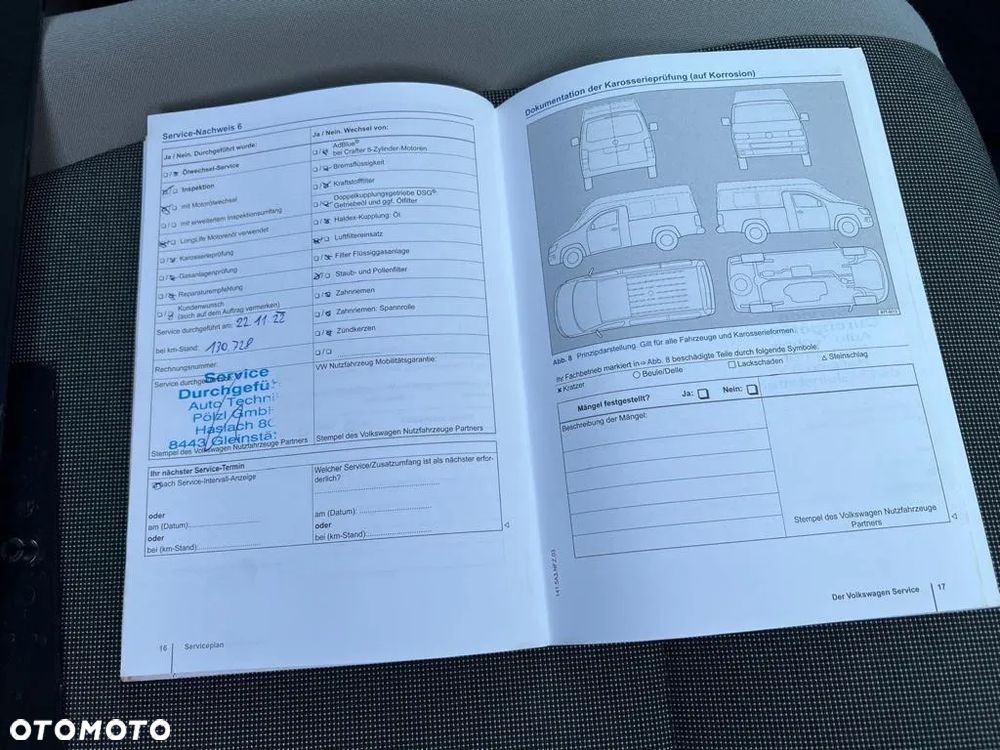 Service-Nachweis 6
Ja / Nein. Durchgeführt wurde:
Ölwechsel-Service
Inspektion
mit Motorölwechsel
mit erweitertem Inspektionsumfang
LongLife Motorenöl verwendet
Karosserieprüfung
Gasanlagenprüfung
Reparaturempfehlung
Kundenwunsch
(auch auf dem Auftrag vermerken)
Service durchgeführt am: 22.11.22
bei km-Stand: 130.728
Rechnungsnummer:
Service
Durchgefü
Auto Techni
Pölzl Gmb
Haslach 8
8443 Gleinstä
Stempel des Volkswagen Nutzfahrzeuge Partners
Ja / Nein. Wechsel von:
AdBlue®
bei Crafter 5-Zylinder-Motoren
Bremsflüssigkeit
Kraftstofffilter
Doppelkupplungsgetriebe DSG®:
Getriebeöl und ggf. Ölfilter
Haldex-Kupplung: Öl
Luftfiltereinsatz
Filter Flüssiggasanlage
Staub- und Pollenfilter
Zahnriemen
Zahnriemen: Spannrolle
Zündkerzen
VW Nutzfahrzeug Mobilitätsgarantie:
Stempel des Volkswagen Nutzfahrzeuge Partners
Ihr nächster Service-Termin
nach Service-Intervall-Anzeige
oder
am (Datum):
oder
bei (km-Stand):
Welcher Service/Zusatzumfang ist als nächster erfor-
derlich?
am (Datum):
oder
bei (km-Stand):
16 Serviceplan
Dokumentation der Karosserieprüfung (auf Korrosion)
Abb. 8 Prinzipdarstellung. Gilt für alle Fahrzeuge und Karosserieformen.
Ihr Fachbetrieb markiert in Abb. 8 beschädigte Teile durch folgende Symbole:
x Kratzer ○ Beule/Delle □ Lackschaden △ Steinschlag
Mängel festgestellt? Ja: Nein:
Beschreibung der Mängel:
Stempel des Volkswagen Nutzfahrzeuge
Partners
Der Volkswagen Service 17
OTOMOTO